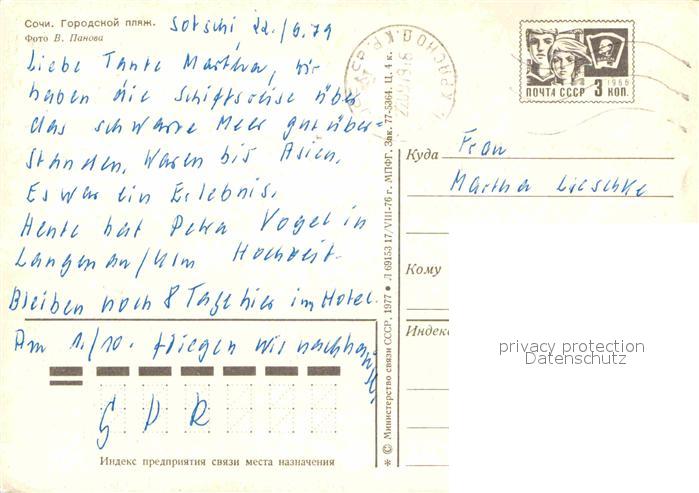 Сочи. Городской пляж.
Фото В. Панова
Sotschi, 22./9.79
Liebe Tante Martha, wir
haben die Schiffsreise über
das schwarze Meer gut über-
standen. Waren bis Asien.
Es war ein Erlebnis.
Heute hat Petra Vogel in
Langenau/Ulm Hochzeit.
Bleiben noch 8 Tage hier im Hotel.
Am 1./10. fliegen wir nachhause.
GDR
Индекс предприятия связи места назначения
* © Министерство связи СССР. 1977 • Л 69153 17/VIII-76 г. МПФГ. Зак. 77-5364. Ц. 4 к.
ПОЧТА СССР 3 КОП.
1966
Куда Frau
Martha Lieschke
Кому
Индекс
privacy protection
Datenschutz